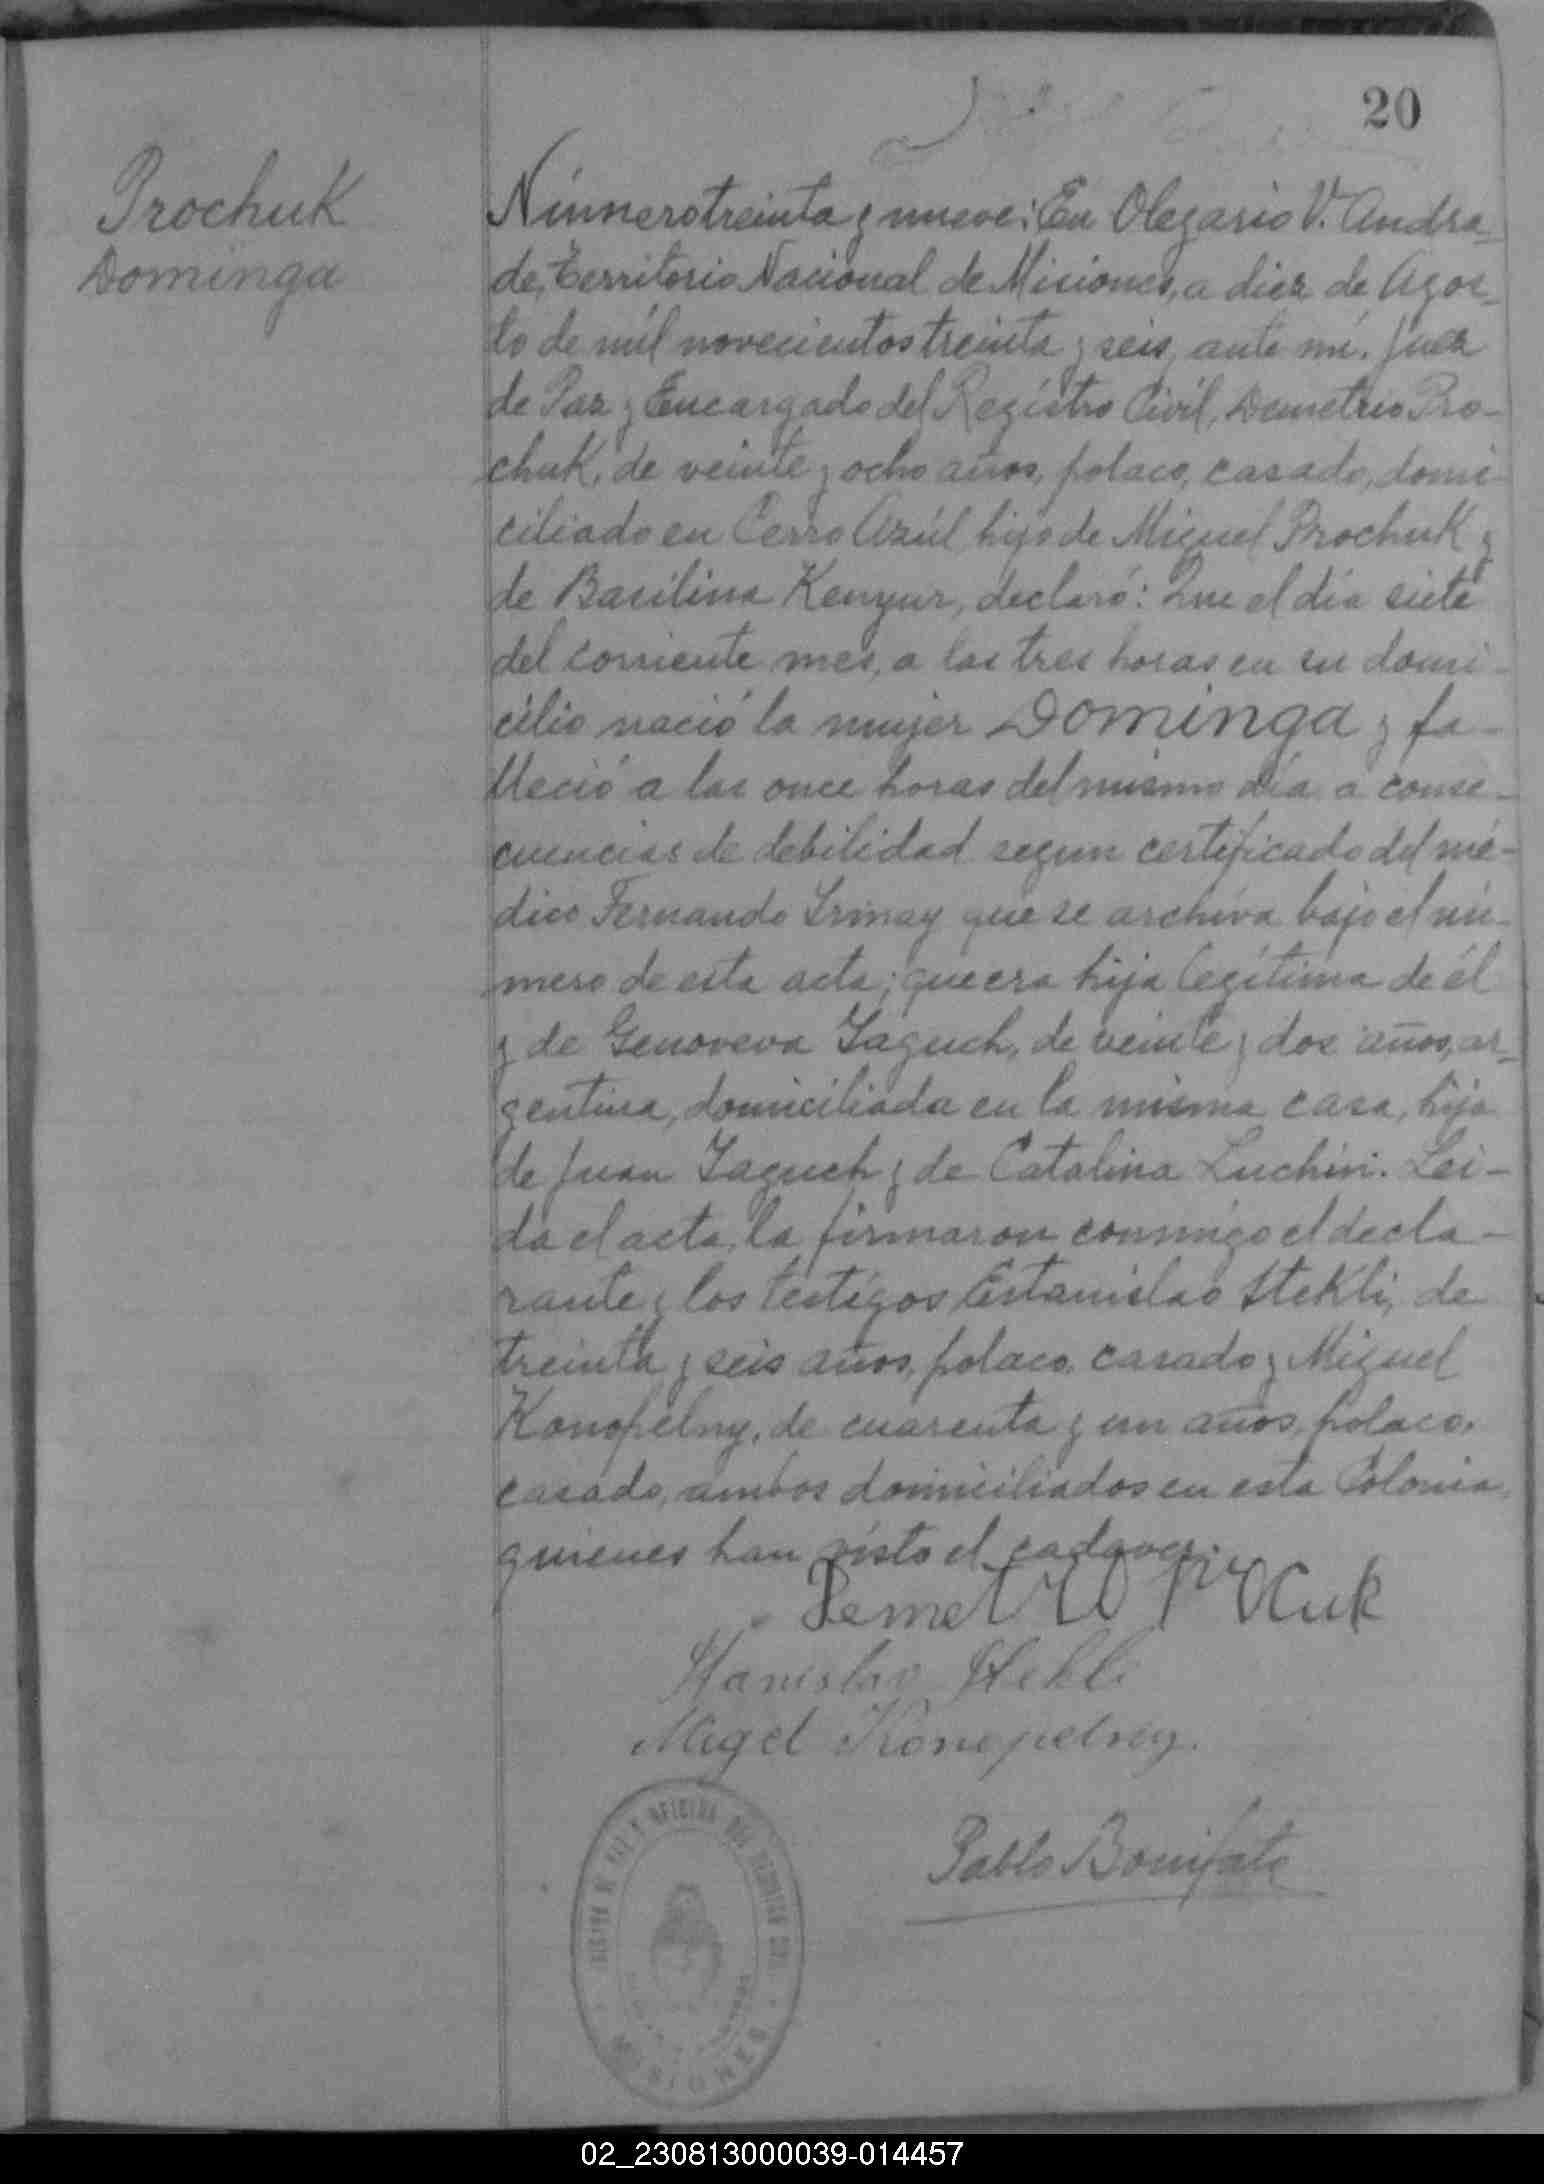 20
Prochuk
Dominga
Número treinta y nueve: En Olegario V. Andra-
de, Territorio Nacional de Misiones, a diez de Agos-
to de mil novecientos treinta y seis, ante mí, Juez
de Paz y Encargado del Registro Civil, Demetrio Pro-
chuk, de veinte y ocho años, polaco, casado, domi-
ciliado en Cerro Azúl, hijo de Miguel Prochuk y
de Basilina Kenyur, declaró: Que el día siete
del corriente mes, a las tres horas en su domi-
cilio nació la mujer Dominga y fa-
lleció a las once horas del mismo día a conse-
cuencias de debilidad segun certificado del mé-
dico Fernando Irmay que se archiva bajo el nú-
mero de esta acta; que era hija legítima de él
y de Genoveva Yaguch, de veinte y dos años, ar-
gentina, domiciliada en la misma casa, hija
de Juan Yaguch y de Catalina Luchiri. Lei-
da el acta, la firmaron conmigo el decla-
rante y los testigos Estanislao Stekli, de
treinta y seis años, polaco, casado y Miguel
Konopelny, de cuarenta y un años, polaco,
casado, ambos domiciliados en esta Colonia,
quienes han visto el cadaver.
Demetrio Procuk
Stanislav Stekli
Migel Konopelney.
Pablo Bonifato
JUZGADO DE PAZ Y OFICINA DEL REGISTRO CIVIL
MISIONES
02_230813000039-014457